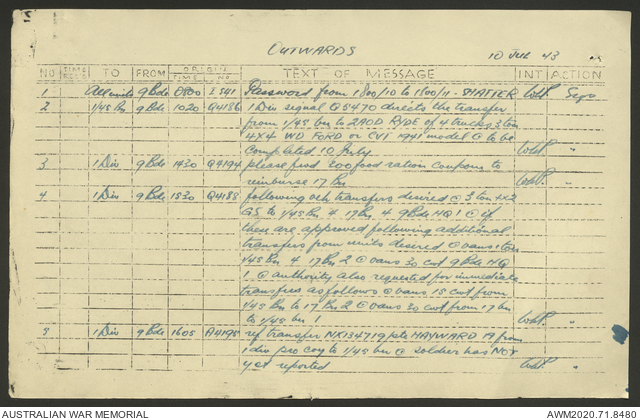 OUTWARDS
10 JUL 43
NO TIME RECD TO FROM ORIGIN TIME NO TEXT OF MESSAGE INT ACTION
1 All units 9 Bde 0800 Z541 Password from 1800/10 to 1800/11 - SHATTER WdP. Sigs
2 1/45 Bn 9 Bde 1020 Q4186 1 Div signal Q5470 directs the transfer
from 1/45 bn to 2 AOD RYDE of 4 trucks 3 ton
4X4 WD FORD or CVT 1941 model @ to be
completed 10 July WdP. "
3 1 Div 9 Bde 1430 Q4194 please fwd 200 food ration coupons to
reimburse 17 bn WdP. "
4 1 Div 9 Bde 1530 Q4188 following veh transfers desired @ 3 ton 4x2
GS to 1/45 Bn 4 17 Bn 4 9 Bde HQ 1 @ if
these are approved following additional
transfers from units desired @ vans 1 ton
1/45 Bn 4 17 Bn 2 @ vans 30 cwt 9 Bde HQ
1 @ authority also requested for immediate
transfers as follows @ vans 15 cwt from
1/45 Bn to 17 Bn 2 @ vans 30 cwt from 17 bn
to 1/45 bn 1 WdP. "
5 1 Div 9 Bde 1605 A4195 ref transfer NX134719 pte HAYWARD A from
1 div pro coy to 1/45 bn @ soldier has NOT
yet reported WdP. "
AUSTRALIAN WAR MEMORIAL
AWM2020.71.8480